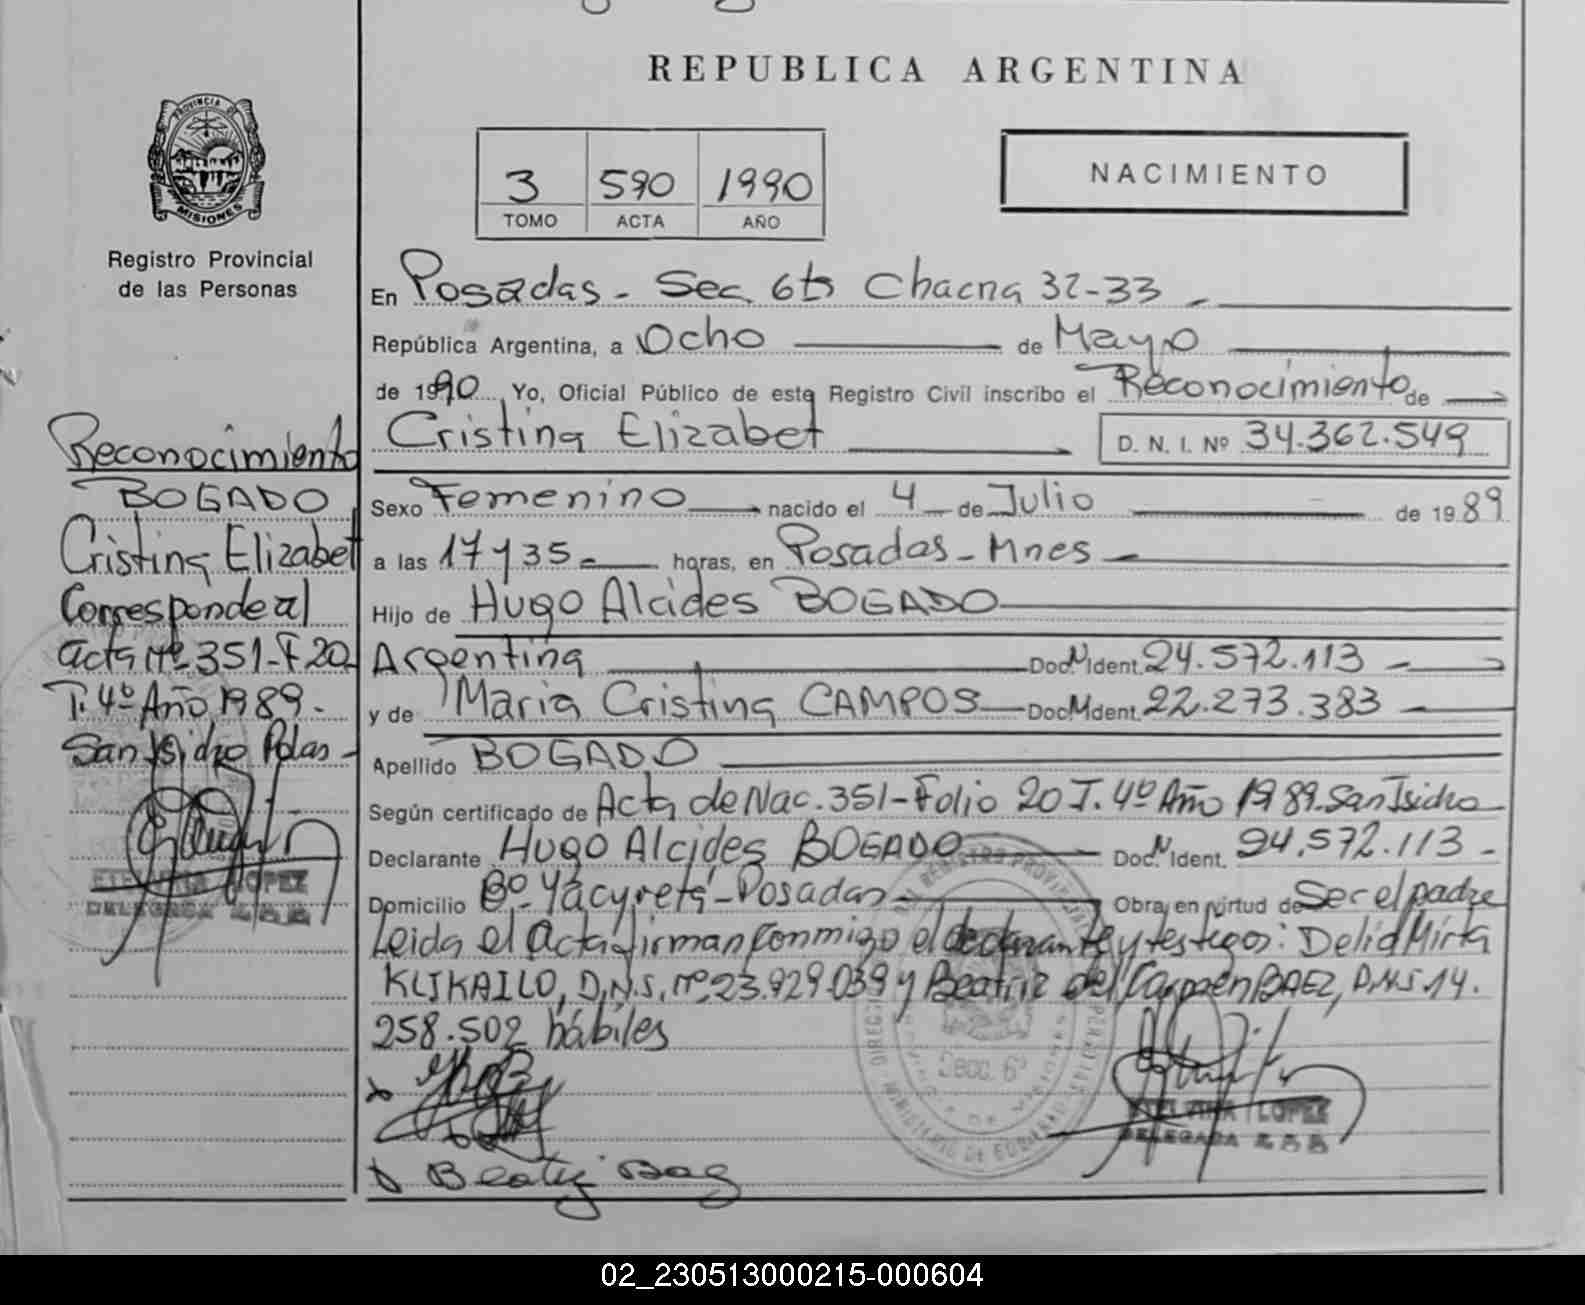 REPUBLICA ARGENTINA
PROVINCIA DE
MISIONES
Registro Provincial
de las Personas
3 590 1990
TOMO ACTA AÑO
NACIMIENTO
En Posadas - Sec 6ta Chacra 32-33
República Argentina, a Ocho de Mayo
de 1990 Yo, Oficial Público de este Registro Civil inscribo el Reconocimiento de
Cristina Elizabet D. N. I. Nº 34.362.549
Sexo Femenino nacido el 4 de Julio de 1989
a las 17 y 35 horas, en Posadas - Mnes
Hijo de Hugo Alcides BOGADO
Argentina Doc. Ident. 24.572.113
y de Maria Cristina CAMPOS Doc. Ident. 22.273.383
Apellido BOGADO
Según certificado de Acta de Nac. 351 - Folio 20 T. 4º Año 1989. San Isidro
Declarante Hugo Alcides BOGADO Doc. Ident. 24.572.113 -
Domicilio Bº Yacyretá - Posadas Obra en virtud de Ser el padre
Leida el Acta firman conmigo el declarante y testigos: Delia Mirta
KLIKAILO, D.N.I. nº 23.929.039 y Beatriz del Carmen BAEZ, D.N.I. 14.
258.502 hábiles
Beatriz Baez
Reconocimiento
BOGADO
Cristina Elizabet
Corresponde al
acta Nº 351 - F 20
T. 4º Año 1989.
San Isidro Pdas -
ETELVINA LOPEZ
DELEGADA
ETELVINA LOPEZ
DELEGADA
SECC. 6ª
02_230513000215-000604